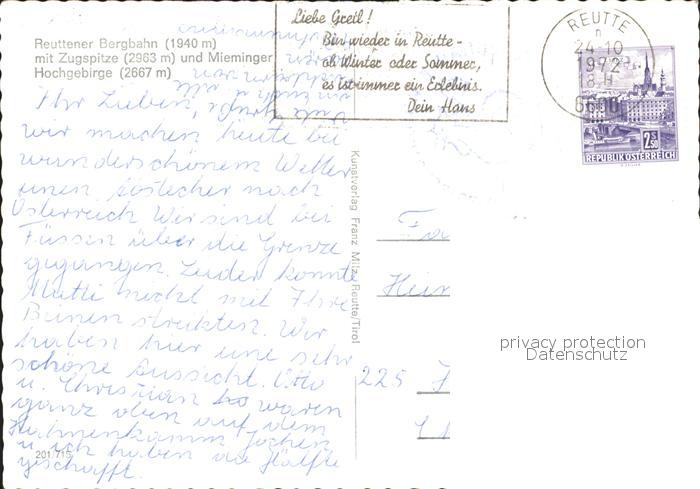 Reuttener Bergbahn (1940 m)
mit Zugspitze (2963 m) und Mieminger
Hochgebirge (2667 m)
Liebe Greil!
Bin wieder in Reutte -
ob Winter oder Sommer,
es ist immer ein Erlebnis.
Dein Hans
REUTTE
n
24-10
1972
8 H
6600
2S50
REPUBLIK ÖSTERREICH
Ihr Lieben,
wir machen heute bei
wunderschönem Wetter
einen nach
Österreich Wir sind bei
Füssen über die Grenze
gegangen. Leider konnte
Mutti nicht mit Ihre
Beinen streikten. Wir
haben hier eine sehr
schöne Aussicht. Otto
u. Christian waren
ganz oben auf dem
Hahnenkamm Jochen
u. ich haben die Hälfte
geschafft.
201/715
Kunstverlag Franz Milz, Reutte/Tirol
Fa
Hein
225
privacy protection
Datenschutz